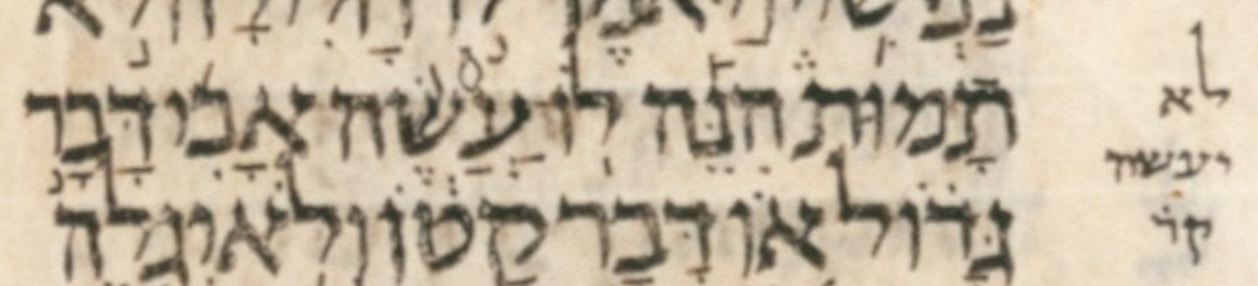 תָּמוּת הִנֵּה לו עַשֶׂה אָבִי דָּבָר
גָּדוֹל אוֹ דָּבָר קָטֹן וְלֹא יִגְלֶה
לא
יעשה
קֹ